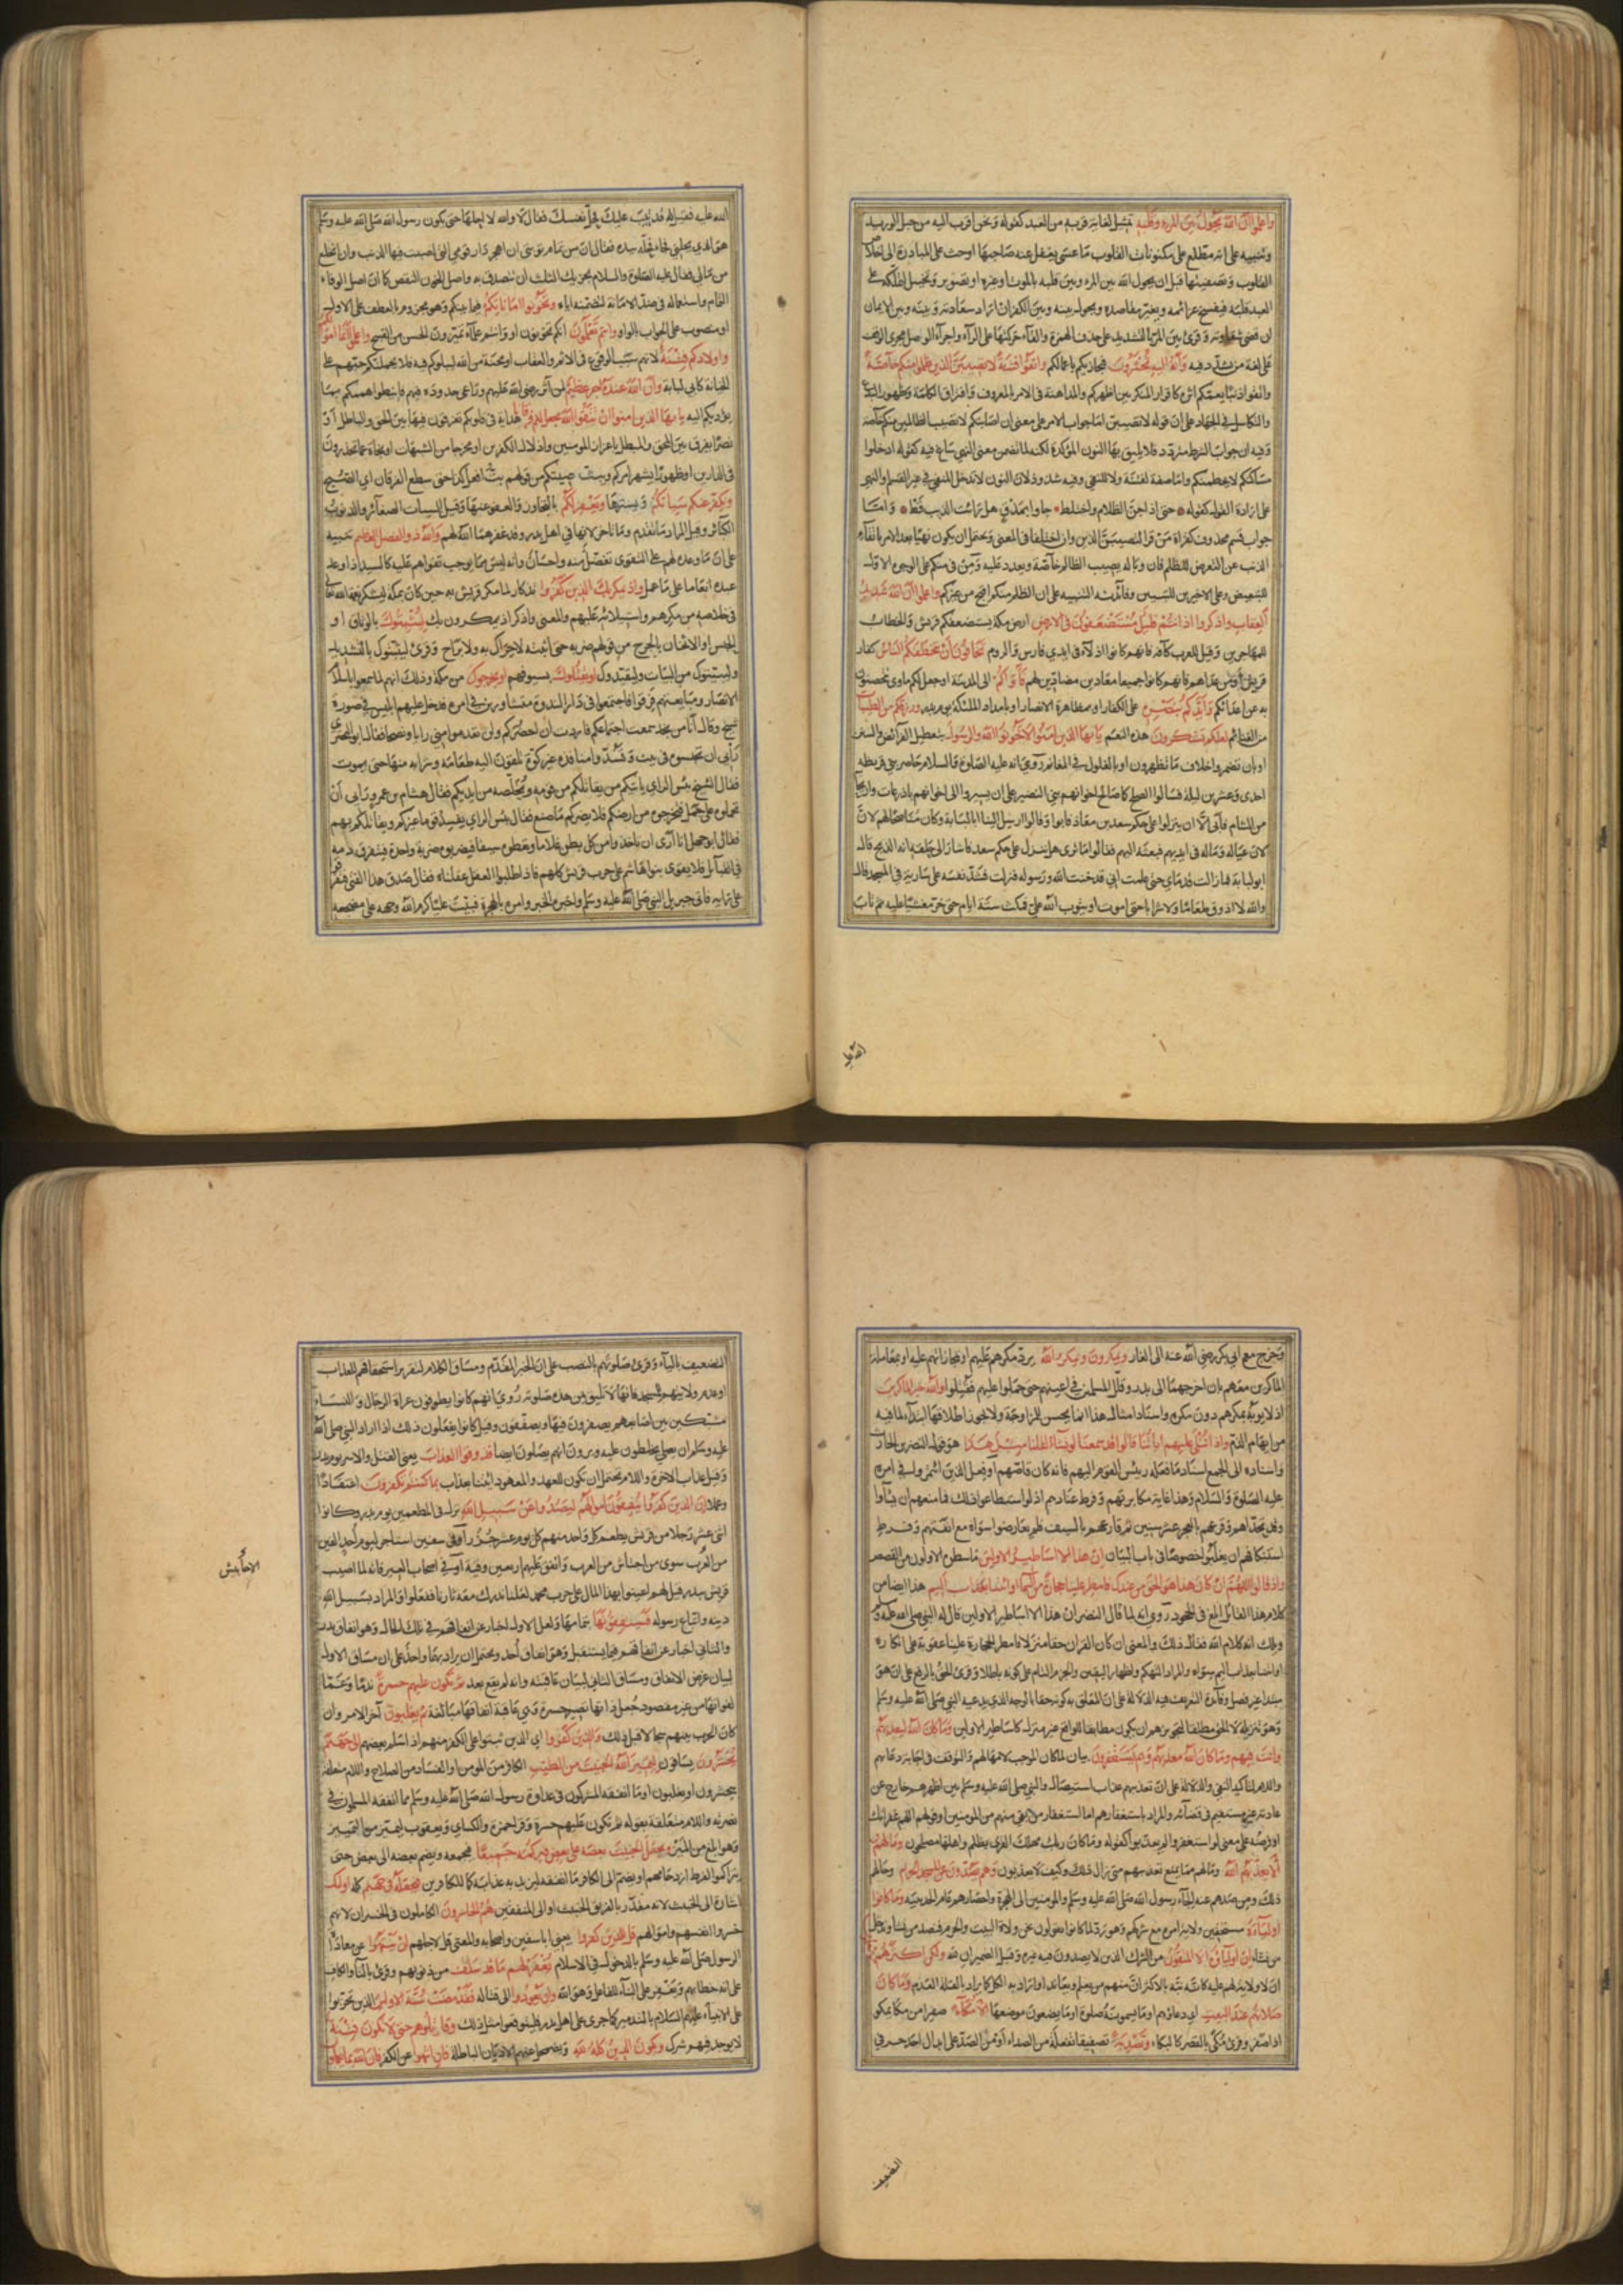 واعلموا ان الله يحول بين المرء وقلبه تمثيل لغاية قربه من العبد كقوله ونحن اقرب اليه من حبل الوريد
وتنبيه على انه مطلع على مكنونات القلوب ما عسى يغفل عنه صاحبها اوحث على المبادرة الى اخلاص
القلوب وتصفيتها قبل ان يحول الله بين المرء وبين قلبه بالموت او غيره او تصوير وتخييل لتملكه على
العبد قلبه فيفسخ عزائمه ويغير مقاصده ويحول بينه وبين الكفر ان اراد سعادته وبينه وبين الايمان
ان قضى شقاوته وقرئ بين المر بالتشديد على حذف الهمزة والقاء حركتها على الراء واجراء الوصل مجرى الوقف
على لغة من شدد فيه وانه اليه تحشرون فيجازيكم باعمالكم واتقوا فتنة لا تصيبن الذين ظلموا منكم خاصة
واتقوا ذنبا يعمكم اثره كاقرار المنكر بين اظهركم والمداهنة في الامر بالمعروف وافتراق الكلمة وظهور البدع
والتكاسل في الجهاد على ان قوله لا تصيبن اما جواب الامر على معنى ان اصابتكم لا تصيب الظالمين منكم خاصة
وفيه ان جواب الشرط متردد فلا يليق بها النون المؤكدة لكنه لما تضمن معنى النهي ساغ فيه كقوله ادخلوا
مساكنكم لا يحطمنكم واما صفة لفتنة ولا للنفي وفيه شذوذ لان النون لا تدخل المنفي في غير القسم او للنهي
على ارادة القول كقوله حتى اذا جن الظلام واختلط جاوا بمذق هل رايت الذيب قط واما
جواب قسم محذوف كقراءة من قرا لتصيبن وان اختلفا في المعنى ويحتمل ان يكون نهيا بعد الامر باتقاء
الذنب عن التعرض للظلم فان وباله يصيب الظالم خاصة ويعود عليه ومن في منكم على الوجوه الاول
للتبعيض وعلى الاخيرين للتبيين وفائدته التنبيه على ان الظلم منكم اقبح من غيركم واعلموا ان الله شديد
العقاب واذكروا اذ انتم قليل مستضعفون في الارض ارض مكة يستضعفكم قريش والخطاب
للمهاجرين وقيل للعرب كافة فانهم كانوا اذلاء في ايدي فارس والروم تخافون ان يتخطفكم الناس كفار
قريش او من عداهم فانهم كانوا جميعا معادين مضادين لهم فآواكم الى المدينة او جعل لكم ماوى تتحصنون
به عن اعدائكم وايدكم بنصره على الكفار او بمظاهرة الانصار او بامداد الملئكة يوم بدر ورزقكم من الطيبات
من الغنائم لعلكم تشكرون هذه النعم يايها الذين امنوا لا تخونوا الله والرسول بتعطيل الفرائض والسنن
او بان تضمروا خلاف ما تظهرون او بالغلول في المغانم وروي انه عليه الصلوة والسلام حاصر بني قريظة
احدى وعشرين ليلة فسالوا الصلح كما صالح اخوانهم بني النضير على ان يسيروا الى اخوانهم باذرعات واريحا
من الشام فابى الا ان ينزلوا على حكم سعد بن معاذ فابوا وقالوا ارسل الينا ابا لبابة وكان مناصحا لهم لان
لان عياله وماله في ايديهم فبعثه اليهم فقالوا ما ترى هل ننزل على حكم سعد فاشار الى حلقه انه الذبح قال
ابو لبابة فما زالت قدماي حتى علمت اني قد خنت الله ورسوله فنزلت فشد نفسه على سارية في المسجد وقال
والله لا اذوق طعاما ولا شرابا حتى اموت او يتوب الله علي فمكث ستة ايام حتى خر مغشيا عليه ثم تاب
الله عليه
الله عليه فقيل له قد تيب عليك فحل نفسك فقال لا والله لا احلها حتى يكون رسول الله صلى الله عليه وسلم
هو الذي يحلني فجاء فحله بيده فقال ان من تمام توبتي ان اهجر دار قومي التي اصبت فيها الذنب وان انخلع
من مالي فقال عليه الصلوة والسلام يجزيك الثلث ان تتصدق به واصل الخون النقص كما ان اصل الوفاء
التمام واستعماله في ضد الامانة لتضمنه اياه وتخونوا اماناتكم فيما بينكم وهو مجزوم بالعطف على الاول
او منصوب على الجواب بالواو وانتم تعلمون انكم تخونون او وانتم علماء تميزون الحسن من القبيح واعلموا انما اموالكم
واولادكم فتنة لانهم سبب الوقوع في الاثم والعقاب او محنة من الله ليبلوكم فيه فلا يحملنكم حبهم على
الخيانة كابي لبابة وان الله عنده اجر عظيم لمن آثر رضى الله عليهم وراعى حدوده فيهم فانيطوا هممكم بما
يؤديكم اليه يايها الذين امنوا ان تتقوا الله يجعل لكم فرقانا هداية في قلوبكم تفرقون فيها بين الحق والباطل او
نصرا يفرق بين المحق والمبطل باعزاز المومنين واذلال الكفرين او مخرجا من الشبهات او نجاة عما تحذرون
في الدارين او ظهورا يشهر امركم ويبث صيتكم من قولهم بت افعل كذا حتى سطع الفرقان اي الصبح
ويكفر عنكم سيياتكم ويسترها ويغفر لكم بالتجاوز والعفو عنها وقيل السيات الصغائر والذنوب
الكبائر وقيل المراد ما تقدم وما تاخر لانها في اهل بدر وقد غفرهما الله لهم والله ذو الفضل العظيم تنبيه
على ان ما وعده لهم على التقوى تفضل منه واحسان وانه ليس مما يوجب تقواهم عليه كالسيد اذا وعد
عبده انعاما على ما عمل واذ يمكر بك الذين كفروا تذكار لما مكر قريش به حين كان بمكة ليشكر نعمة الله تعالى
في خلاصه من مكرهم واستيلائه عليهم والمعنى واذكر اذ يمكرون بك ليثبتوك بالوثاق او
الحبس او الاثخان بالجرح من قولهم ضربه حتى اثبته لا حراك به ولا براح وقرئ ليثبتوك بالتشديد
وليبيتوك من البيات وليقيدوك او يقتلوك بسيوفهم او يخرجوك من مكة وذلك انهم لما سمعوا باسلام
الانصار ومتابعتهم فرقوا فاجتمعوا في دار الندوة متشاورين في امره فدخل عليهم ابليس في صورة
شيخ وقال انا من نجد سمعت اجتماعكم فاردت ان احضركم ولن تعدموا مني رايا ونصحا فقال ابو البختري
رايي ان تحبسوه في بيت وتسدوا منافذه غير كوة تلقون اليه طعامه وشرابه منها حتى يموت
فقال الشيخ بئس الراي ياتيكم من يقاتلكم من قومه ويخلصه من ايديكم فقال هشام بن عمرو رايي ان
تحملوه على جمل فتخرجوه من ارضكم فلا يضركم ما صنع فقال بئس الراي يفسد قوما غيركم ويقاتلكم بهم
فقال ابو جهل انا ارى ان تاخذوا من كل بطن غلاما وتعطوه سيفا فيضربوه ضربة واحدة فيتفرق دمه
في القبائل فلا يقوى بنو هاشم على حرب قريش كلهم فاذا طلبوا العقل عقلناه فقال صدق هذا الفتى فتفرقوا
على رايه فاتى جبريل النبي صلى الله عليه وسلم واخبره الخبر وامره بالهجرة فبيت عليا كرم الله وجهه على مضجعه
وخرج مع ابي بكر رضي الله عنه الى الغار ويمكرون ويمكر الله برد مكرهم عليهم او بمجازاتهم عليه او بمعاملة
الماكرين معهم بان اخرجهم الى بدر وقلل المسلمين في اعينهم حتى حملوا عليهم فقتلوا والله خير الماكرين
اذ لا يؤبه بمكرهم دون مكره واسناد امثال هذا انما يحسن للمزاوجة ولا يجوز اطلاقها ابتداء لما فيه
من ايهام الذم واذا تتلى عليهم اياتنا قالوا قد سمعنا لو نشاء لقلنا مثل هذا هو قول النضر بن الحارث
واسناده الى الجمع اسناد ما فعله رئيس القوم اليهم فانه كان قاصهم او قول الذين ائتمروا في امره
عليه الصلوة والسلام وهذا غاية مكابرتهم وفرط عنادهم اذ لو استطاعوا ذلك فما منعهم ان يشاوا
وقد تحداهم وقرعهم بالعجز عشر سنين ثم قارعهم بالسيف فلم يعارضوا سواه مع انفتهم وفرط
استنكافهم ان يغلبوا خصوصا في باب البيان ان هذا الا اساطير الاولين ما سطره الاولون من القصص
واذ قالوا اللهم ان كان هذا هو الحق من عندك فامطر علينا حجارة من السماء او ائتنا بعذاب اليم هذا ايضا من
كلام هذا القائل ابلغ في الجحود روي انه لما قال النضر ان هذا الا اساطير الاولين قال له النبي صلى الله عليه وسلم
ويلك انه كلام الله فقال ذلك والمعنى ان كان القران حقا منزلا فامطر الحجارة علينا عقوبة على انكاره
او ائتنا بعذاب اليم سواه والمراد التهكم واظهار اليقين والجزم التام على كونه باطلا وقرئ الحق بالرفع على ان هو
مبتدا غير فصل وفائدة التعريف فيه الدلالة على ان المعلق به كونه حقا بالوجه الذي يدعيه النبي صلى الله عليه وسلم
وهو تنزيله لا الحق مطلقا لتجويزهم ان يكون مطابقا للواقع غير منزل كاساطير الاولين وما كان الله ليعذبهم
وانت فيهم وما كان الله معذبهم وهم يستغفرون بيان لما كان الموجب لامهالهم والتوقف في اجابة دعائهم
واللام لتاكيد النفي والدلالة على ان تعذيبهم عذاب استيصال والنبي صلى الله عليه وسلم بين اظهرهم خارج عن
عادته غير مستقيم في قضائه والمراد باستغفارهم اما استغفار من بقي منهم من المومنين او قولهم اللهم غفرانك
او فرضه على معنى لو استغفروا لم يعذبوا كقوله وما كان ربك مهلك القرى بظلم واهلها مصلحون وما لهم
الا يعذبهم الله وما لهم مما يمنع تعذيبهم متى زال ذلك وكيف لا يعذبون وهم يصدون عن المسجد الحرام وحالهم
ذلك ومن صدهم عنه الجاء رسول الله صلى الله عليه وسلم والمومنين الى الهجرة واحصارهم عام الحديبية وما كانوا
اولياءه مستحقين ولاية امره مع شركهم وهو رد لما كانوا يقولون نحن ولاة البيت والحرم فنصد من نشاء وندخل
من نشاء ان اولياؤه الا المتقون من الشرك الذين لا يعبدون فيه غيره وقيل الضميران لله ولكن اكثرهم لا يعلمون
ان لا ولاية لهم عليه كانه نبه بالاكثر ان منهم من يعلم ويعاند او اراد به الكل كما يراد بالقلة العدم وما كان
صلاتهم عند البيت اي دعاؤهم او ما يسمونه صلوة او ما يضعون موضعها الا مكاء صفيرا من مكا يمكو
اذا صفر وقرئ مكى بالقصر كالبكاء وتصدية تصفيقا تفعلة من الصداء او من الصد على ابدال احد حرفي
التضعيف
التضعيف بالياء وقرئ صلوتهم بالنصب على ان الخبر المقدم ومساق الكلام لتقرير استحقاقهم للعذاب
او عدم ولايتهم للمسجد فانها لا تليق بمن هذه صلوته روي انهم كانوا يطوفون عراة الرجال والنساء
مشتبكين بين اصابعهم يصفرون فيها ويصفقون وقيل كانوا يفعلون ذلك اذا اراد النبي صلى الله
عليه وسلم ان يصلي يخلطون عليه ويرون انهم يصلون ايضا فذوقوا العذاب يعني القتل والاسر يوم بدر
وقيل عذاب الاخرة واللام يحتمل ان تكون للعهد والمعهود ائتنا بعذاب بما كنتم تكفرون اعتقادا
وعملا ان الذين كفروا ينفقون اموالهم ليصدوا عن سبيل الله نزلت في المطعمين يوم بدر وكانوا
اثنى عشر رجلا من قريش يطعم كل واحد منهم كل يوم عشر جزر او في ابي سفين استاجر ليوم احد الفين
من العرب سوى من اجتاش من العرب وانفق عليهم اربعين وقية او في اصحاب العير فانه لما اصيب
الاحابيش
قريش ببدر قيل لهم اعينوا بهذا المال على حرب محمد لعلنا ندرك منه ثارنا ففعلوا والمراد بسبيل الله
دينه واتباع رسوله فسينفقونها بتمامها ولعل الاول اخبار عن انفاقهم في تلك الحال وهو انفاق بدر
والثاني اخبار عن انفاقهم فيما يستقبل وهو انفاق احد ويحتمل ان يراد بهما واحد على ان مساق الاول
لبيان غرض الانفاق ومساق الثاني لبيان عاقبته وانه لم يقع بعد ثم تكون عليهم حسرة ندما وغما
لفواتها من غير مقصود جعل ذاتها تصير حسرة وهي عاقبة انفاقها مبالغة ثم يغلبون آخر الامر وان
كان الحرب بينهم سجالا قبل ذلك والذين كفروا اي الذين ثبتوا على الكفر منهم اذ اسلم بعضهم الى جهنم
يحشرون يساقون ليميز الله الخبيث من الطيب الكافر من المومن او الفساد من الصلاح واللام متعلقة
بيحشرون او يغلبون او ما انفقه المشركون في عداوة رسول الله صلى الله عليه وسلم مما انفقه المسلمون في
نصرته واللام متعلقة بقوله ثم تكون عليهم حسرة وقرا حمزة والكسائي ويعقوب ليميز من التمييز
وهو ابلغ من الميز ويجعل الخبيث بعضه على بعض فيركمه جميعا فيجمعه ويضم بعضه الى بعض حتى
يتراكبوا لفرط ازدحامهم او يضم الى الكافر ما انفقه ليزيد به عذابه كما للكافرين فيجعله في جهنم كله اولئك
اشارة الى الخبيث لانه مقدر بالفريق الخبيث او الى المنفقين هم الخاسرون الكاملون في الخسران لانهم
خسروا انفسهم واموالهم قل للذين كفروا يعني ابا سفين واصحابه والمعنى قل لاجلهم ان ينتهوا عن معاداة
الرسول صلى الله عليه وسلم بالدخول في الاسلام يغفر لهم ما قد سلف من ذنوبهم وقرئ بالتاء والكاف
على انه خطابهم ويغفر على البناء للفاعل وهو الله وان يعودوا الى قتاله فقد مضت سنة الاولين الذين تحزبوا
على الانبياء عليهم السلام بالتدمير كما جرى على اهل بدر فليتوقعوا مثل ذلك وقاتلوهم حتى لا تكون فتنة
لا يوجد فيهم شرك ويكون الدين كله لله ويضمحل عنهم الاديان الباطلة فان انتهوا عن الكفر فان الله بما يعملون